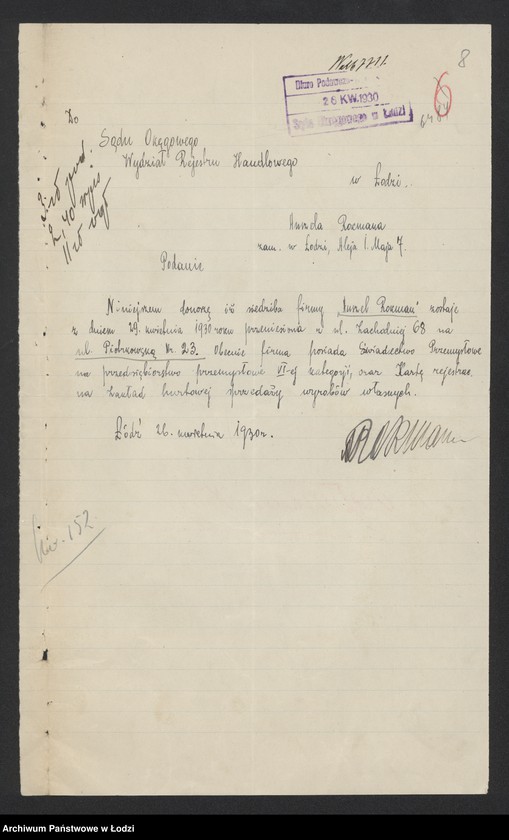 8
Biuro Podawcze
26 KW. 1930
Sądu Okręgowego w Łodzi
6484
Do
Sądu Okręgowego
Wydział Rejestru Handlowego
w Łodzi.
Anszla Rozmana
zam. w Łodzi, Aleja 1. Maja 7.
Podanie
Niniejszem donoszę iż siedziba firmy „Anszel Rozman" zostaje
z dniem 29. kwietnia 1930 roku przeniesiona z ul. Zachodniej 68 na
ul. Piotrkowską Nr. 23. Obecnie firma posiada Świadectwo Przemysłowe
na przedsiębiorstwo przemysłowe VI-ej kategorji, oraz Kartę rejestrac.
na zakład hurtowej sprzedaży wyrobów własnych.
Łódź 26. kwietnia 1930r.
ARozman
152
Archiwum Państwowe w Łodzi